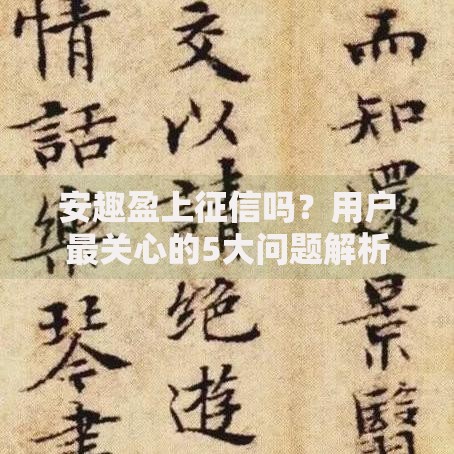 安趣盈上征信吗？用户
最关心的5大问题解析
而知還景翳
交以請絶遊
情話樂琴書